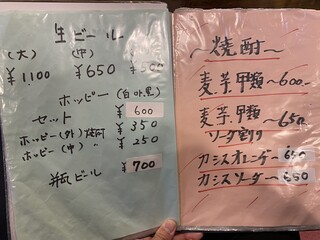 生ビール
(大) (中)
¥1100 ¥650
ホッピー(白or黒)
セット ¥600
ホッピー(外)焼酎 ¥350
ホッピー(中) ¥250
瓶ビール ¥700
〜焼酎〜
麦.芋.甲類〜600-
麦.芋.甲類〜650-
ソーダ割り
カシスオレンヂ〜650
カシスソーダ〜650